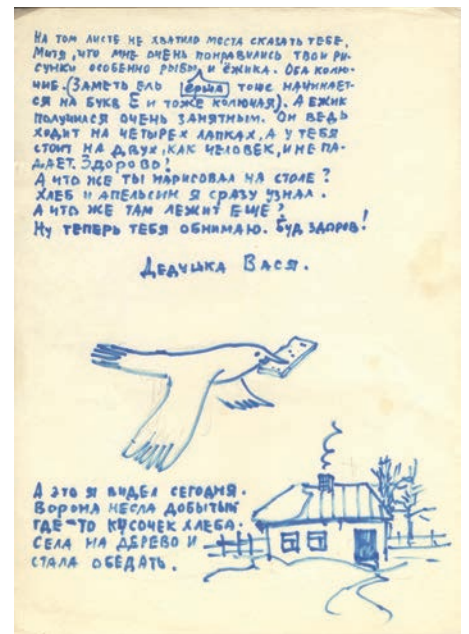 На том листе не хватило места сказать тебе,
Митя, что мне очень понравились твои ри-
сунки особенно рыбы и ёжика. Оба колю-
чие. (Заметь ель ерша тоже начинает-
ся на букв Е и тоже колючая). А ежик
получился очень занятным. Он ведь
ходит на четырех лапках, а у тебя
стоит на двух, как человек, и не па-
дает. Здорово!
А что же ты нарисовал на столе?
Хлеб и апельсин я сразу узнал.
А что же там лежит еще?
Ну теперь тебя обнимаю. Буд здоров!
Дедушка Вася.
А это я видел сегодня.
Ворона несла добытый
где-то кусочек хлеба.
Села на дерево и
стала обедать.